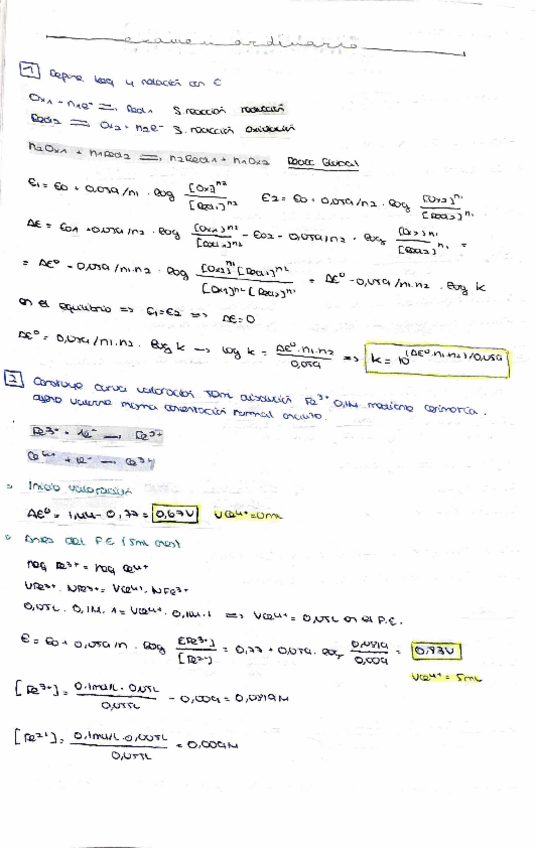 examen ordinario
1 Define keq y relación con E
Ox1 + n1e⁻ ⇌ Red1 S. reacción reducción
Red2 ⇌ Ox2 + n2e⁻ S. reacción oxidación
n2Ox1 + n1Red2 ⇌ n2Red1 + n1Ox2
E1 = E0 + 0,059/n1 · log [Ox1]ⁿ² / [Red1]ⁿ² E2 = E0 + 0,059/n2 · log [Ox2]ⁿ¹ / [Red2]ⁿ¹
= ΔE⁰ - 0,059/n1·n2 · log [Ox2]ⁿ¹ [Red1]ⁿ² / [Ox1]ⁿ² [Red2]ⁿ¹ = ΔE⁰ - 0,059/n1·n2 · log k
en el equilibrio => E1=E2 => ΔE=0
ΔE⁰ = 0,059/n1·n2 · log k → log k = ΔE⁰·n1·n2 / 0,059 => k = 10^(ΔE⁰·n1·n2)/0,059
2 Construye curva valoración 50mL disolución Fe³⁺ 0,1M mediante
misma concentración normal
Fe³⁺ + 1e⁻ → Fe²⁺
Ce⁴⁺ + 1e⁻ → Ce³⁺
Inicio valoración
ΔE⁰ = 1,44 - 0,77 = 0,67V VCe⁴⁺ = 0mL
Antes del P.E (5mL)
VFe³⁺ · NFe³⁺ = VCe⁴⁺ · NFe³⁺
0,05L · 0,1M · 1 = VCe⁴⁺ · 0,1M·1 => VCe⁴⁺ = 0,05L en el P.E.
E = E0 + 0,059/n · log [Fe³⁺] / [Fe²⁺] = 0,77 + 0,059 · log 0,0819 / 0,009 = 0,83V
VCe⁴⁺ = 5mL
[Fe³⁺] = 0,1mol/L · 0,05L / 0,055L - 0,009 = 0,0819M
[Fe²⁺] = 0,1mol/L · 0,005L / 0,055L = 0,009M